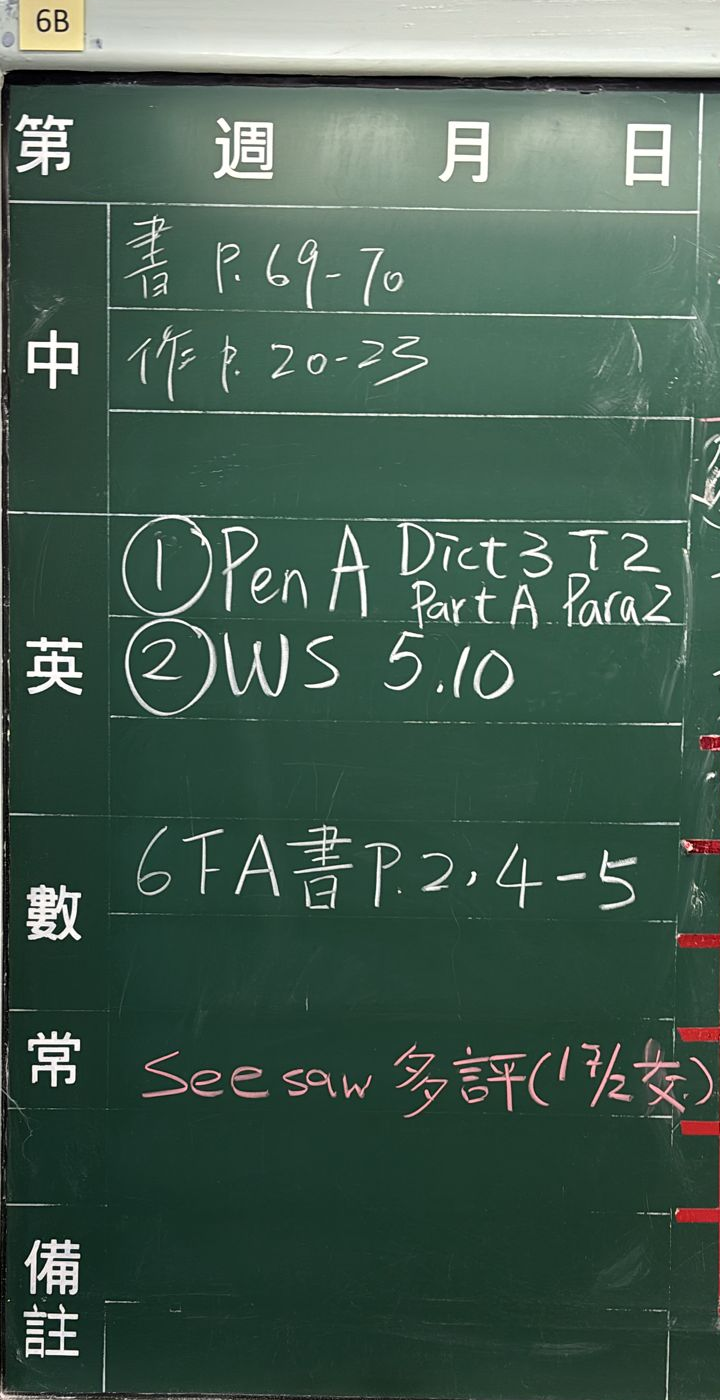 6B
第 週 月 日
中
書 P. 69-70
作 P. 20-23
英
① Pen A Dict 3 T2
Part A Para2
② WS 5.10
數
6下A書P.2,4-5
常
Seesaw 多評(17/2交)
備註